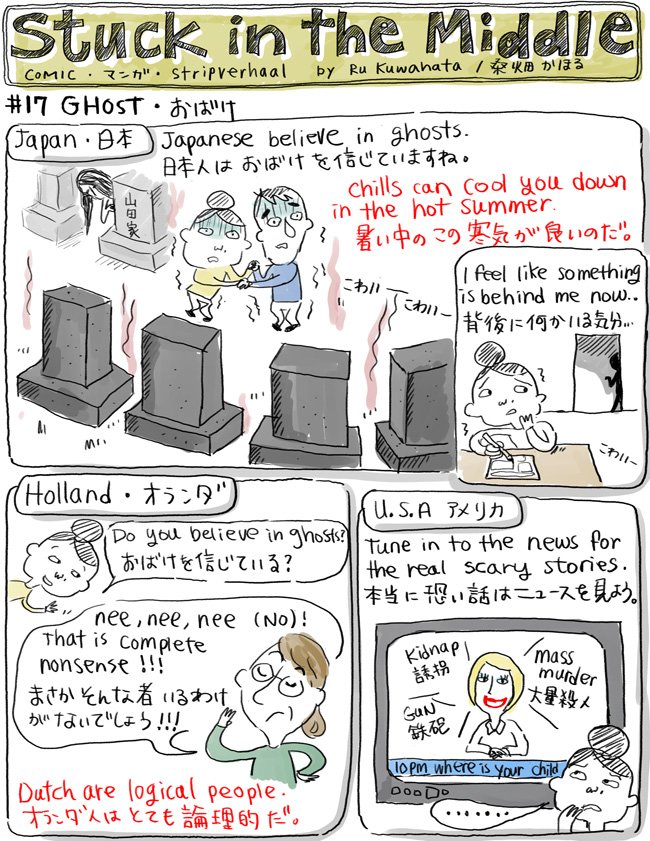 Stuck in the Middle
COMIC・マンガ・Stripverhaal by Ru Kuwahata / 桑畑かほる
#17 GHOST・おばけ
Japan・日本
Japanese believe in ghosts.
日本人は おばけを信じていますね。
山田家
chills can cool you down
in the hot summer.
暑い中のこの寒気が良いのだ。
こわいー
こわいー
I feel like something
is behind me now..
背後に何かいる気分...
こわいー
Holland・オランダ
Do you believe in ghosts?
おばけを信じている?
nee, nee, nee (No)!
That is complete
nonsense !!!
まさかそんな者 いるわけ
がないでしょう!!!
Dutch are logical people.
オランダ人は とても 論理的だ。
U.S.A アメリカ
Tune in to the news for
the real scary stories.
本当に恐い話はニュースを見よう。
Kidnap
誘拐
mass
murder
大量殺人
GUN
鉄砲
10pm where is your child
.......